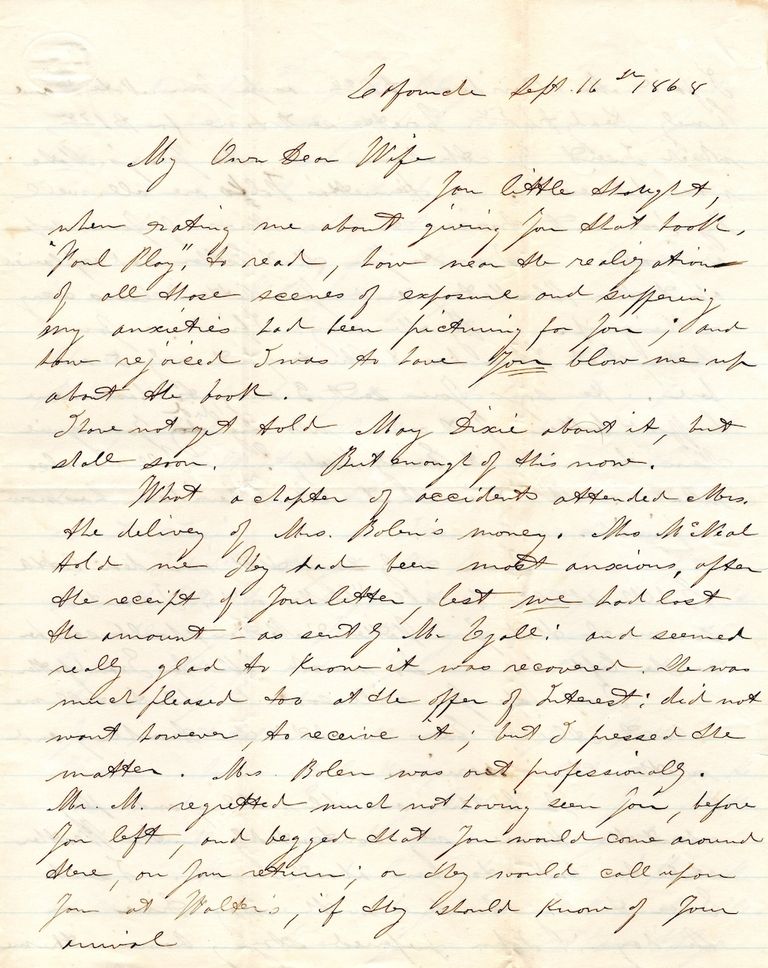 Sept. 16th 1868
My Own Dear Wife
You little thought,
when rating me about giving You that book,
"Foul Play", to read, how near the realization
of all those scenes of exposure and suffering
my anxieties had been picturing for You; and
how rejoiced I was to have You blow me up
about the book.
I have not yet told May Dixie about it, but
shall soon. But enough of this now.
What a chapter of accidents attended Mrs.
the delivey of Mrs. Bolen's money. Mrs McNeal
told me they had been most anxious, after
the receipt of Your letter, lest we had lost
the amount - as sent by Mr. and seemed
really glad to know it was recovered. He was
much pleased too at the offer of Interest; did not
want however, to receive it; but I pressed the
matter. Mrs. Bolen was out professionally.
Mr. M. regretted much not having seen You, before
You left, and begged that You would come around
there, on Your return; or they would call upon
You at Walter's, if they should know of Your
arrival